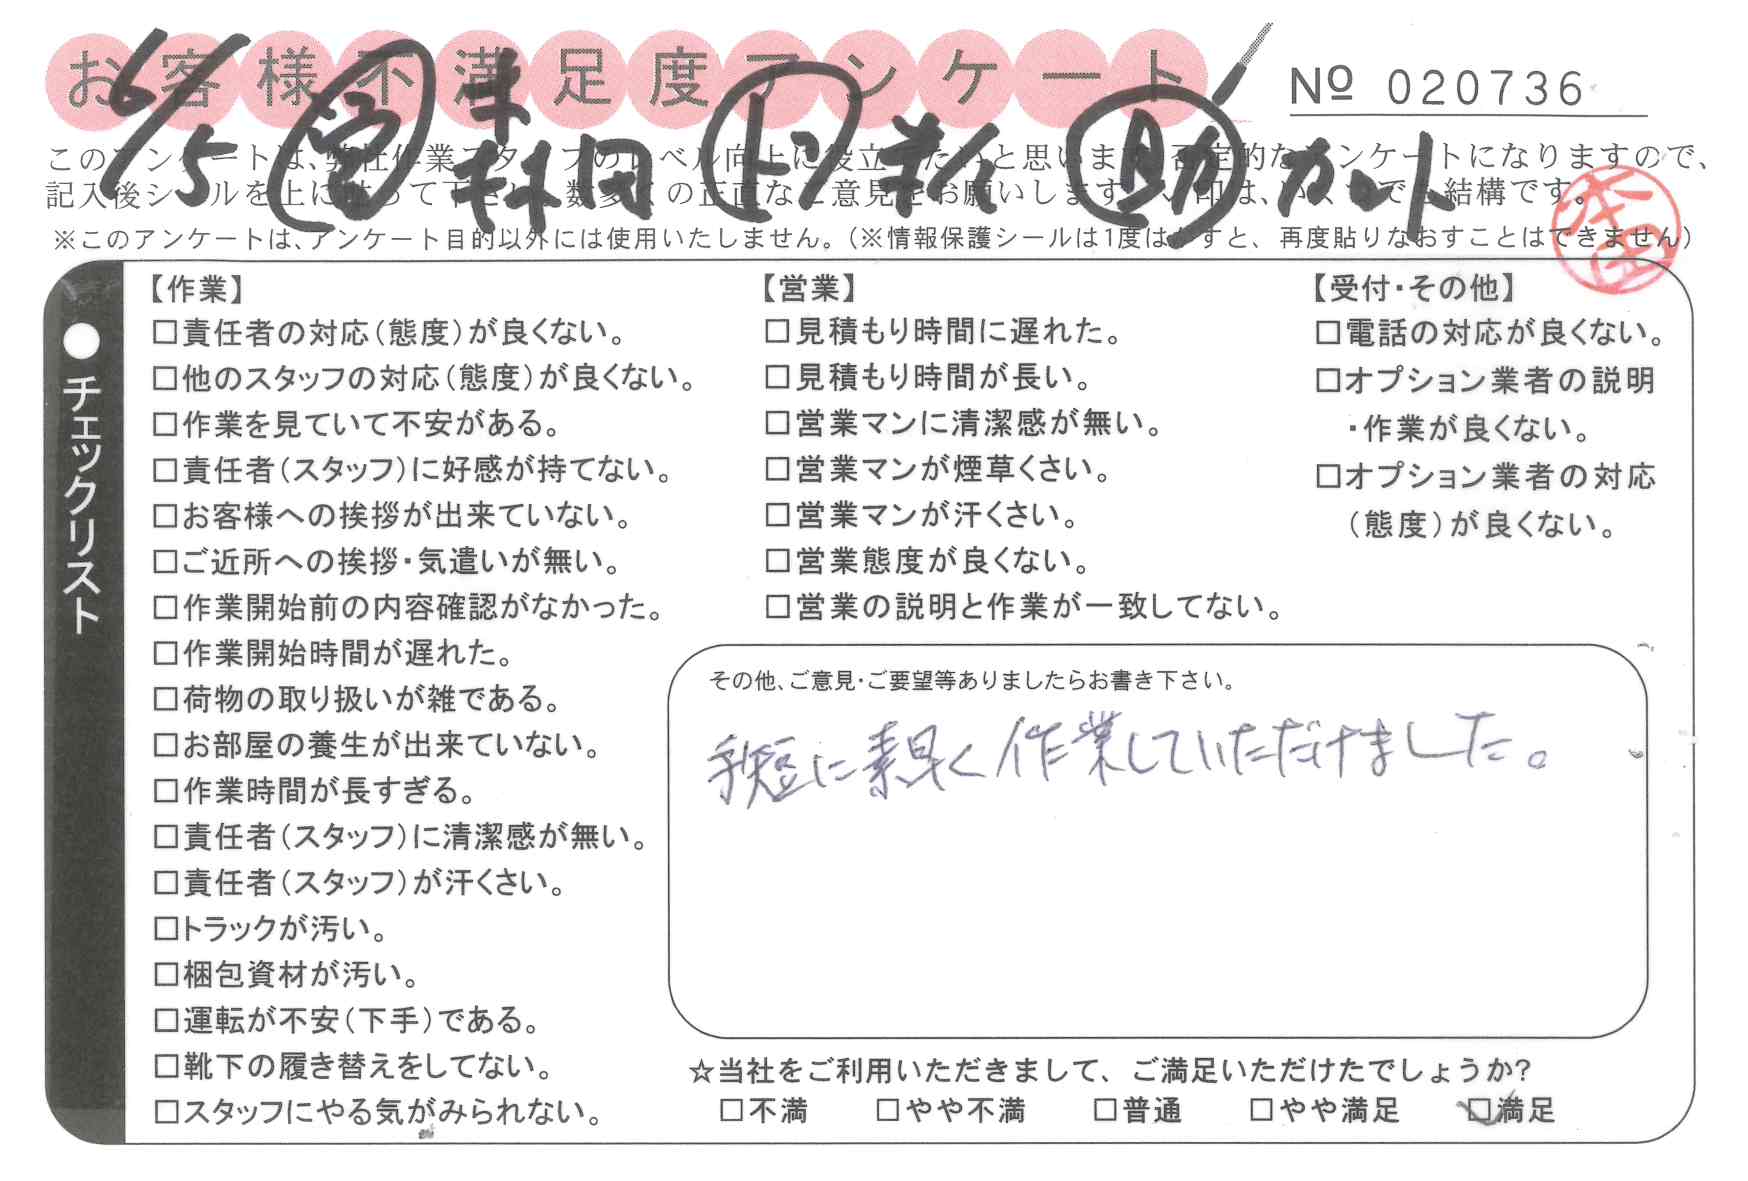 お客様不満足度アンケート
№ 020736
6/5
このアンケートは、弊社作業スタッフのレベル向上に役立てたいと思います。否定的なアンケートになりますので、
記入後シールを上に貼って下さい。数多くの正直なご意見をお願いします。
※このアンケートは、アンケート目的以外には使用いたしません。(※情報保護シールは1度はがすと、再度貼りなおすことはできません)
本田
チェックリスト
【作業】
□責任者の対応(態度)が良くない。
□他のスタッフの対応(態度)が良くない。
□作業を見ていて不安がある。
□責任者(スタッフ)に好感が持てない。
□お客様への挨拶が出来ていない。
□ご近所への挨拶・気遣いが無い。
□作業開始前の内容確認がなかった。
□作業開始時間が遅れた。
□荷物の取り扱いが雑である。
□お部屋の養生が出来ていない。
□作業時間が長すぎる。
□責任者(スタッフ)に清潔感が無い。
□責任者(スタッフ)が汗くさい。
□トラックが汚い。
□梱包資材が汚い。
□運転が不安(下手)である。
□靴下の履き替えをしてない。
□スタッフにやる気がみられない。
【営業】
□見積もり時間に遅れた。
□見積もり時間が長い。
□営業マンに清潔感が無い。
□営業マンが煙草くさい。
□営業マンが汗くさい。
□営業態度が良くない。
□営業の説明と作業が一致してない。
【受付・その他】
□電話の対応が良くない。
□オプション業者の説明
・作業が良くない。
□オプション業者の対応
(態度)が良くない。
その他、ご意見・ご要望等ありましたらお書き下さい。
手短に素早く作業していただけました。
☆当社をご利用いただきまして、ご満足いただけたでしょうか?
□不満 □やや不満 □普通 □やや満足 ☑満足